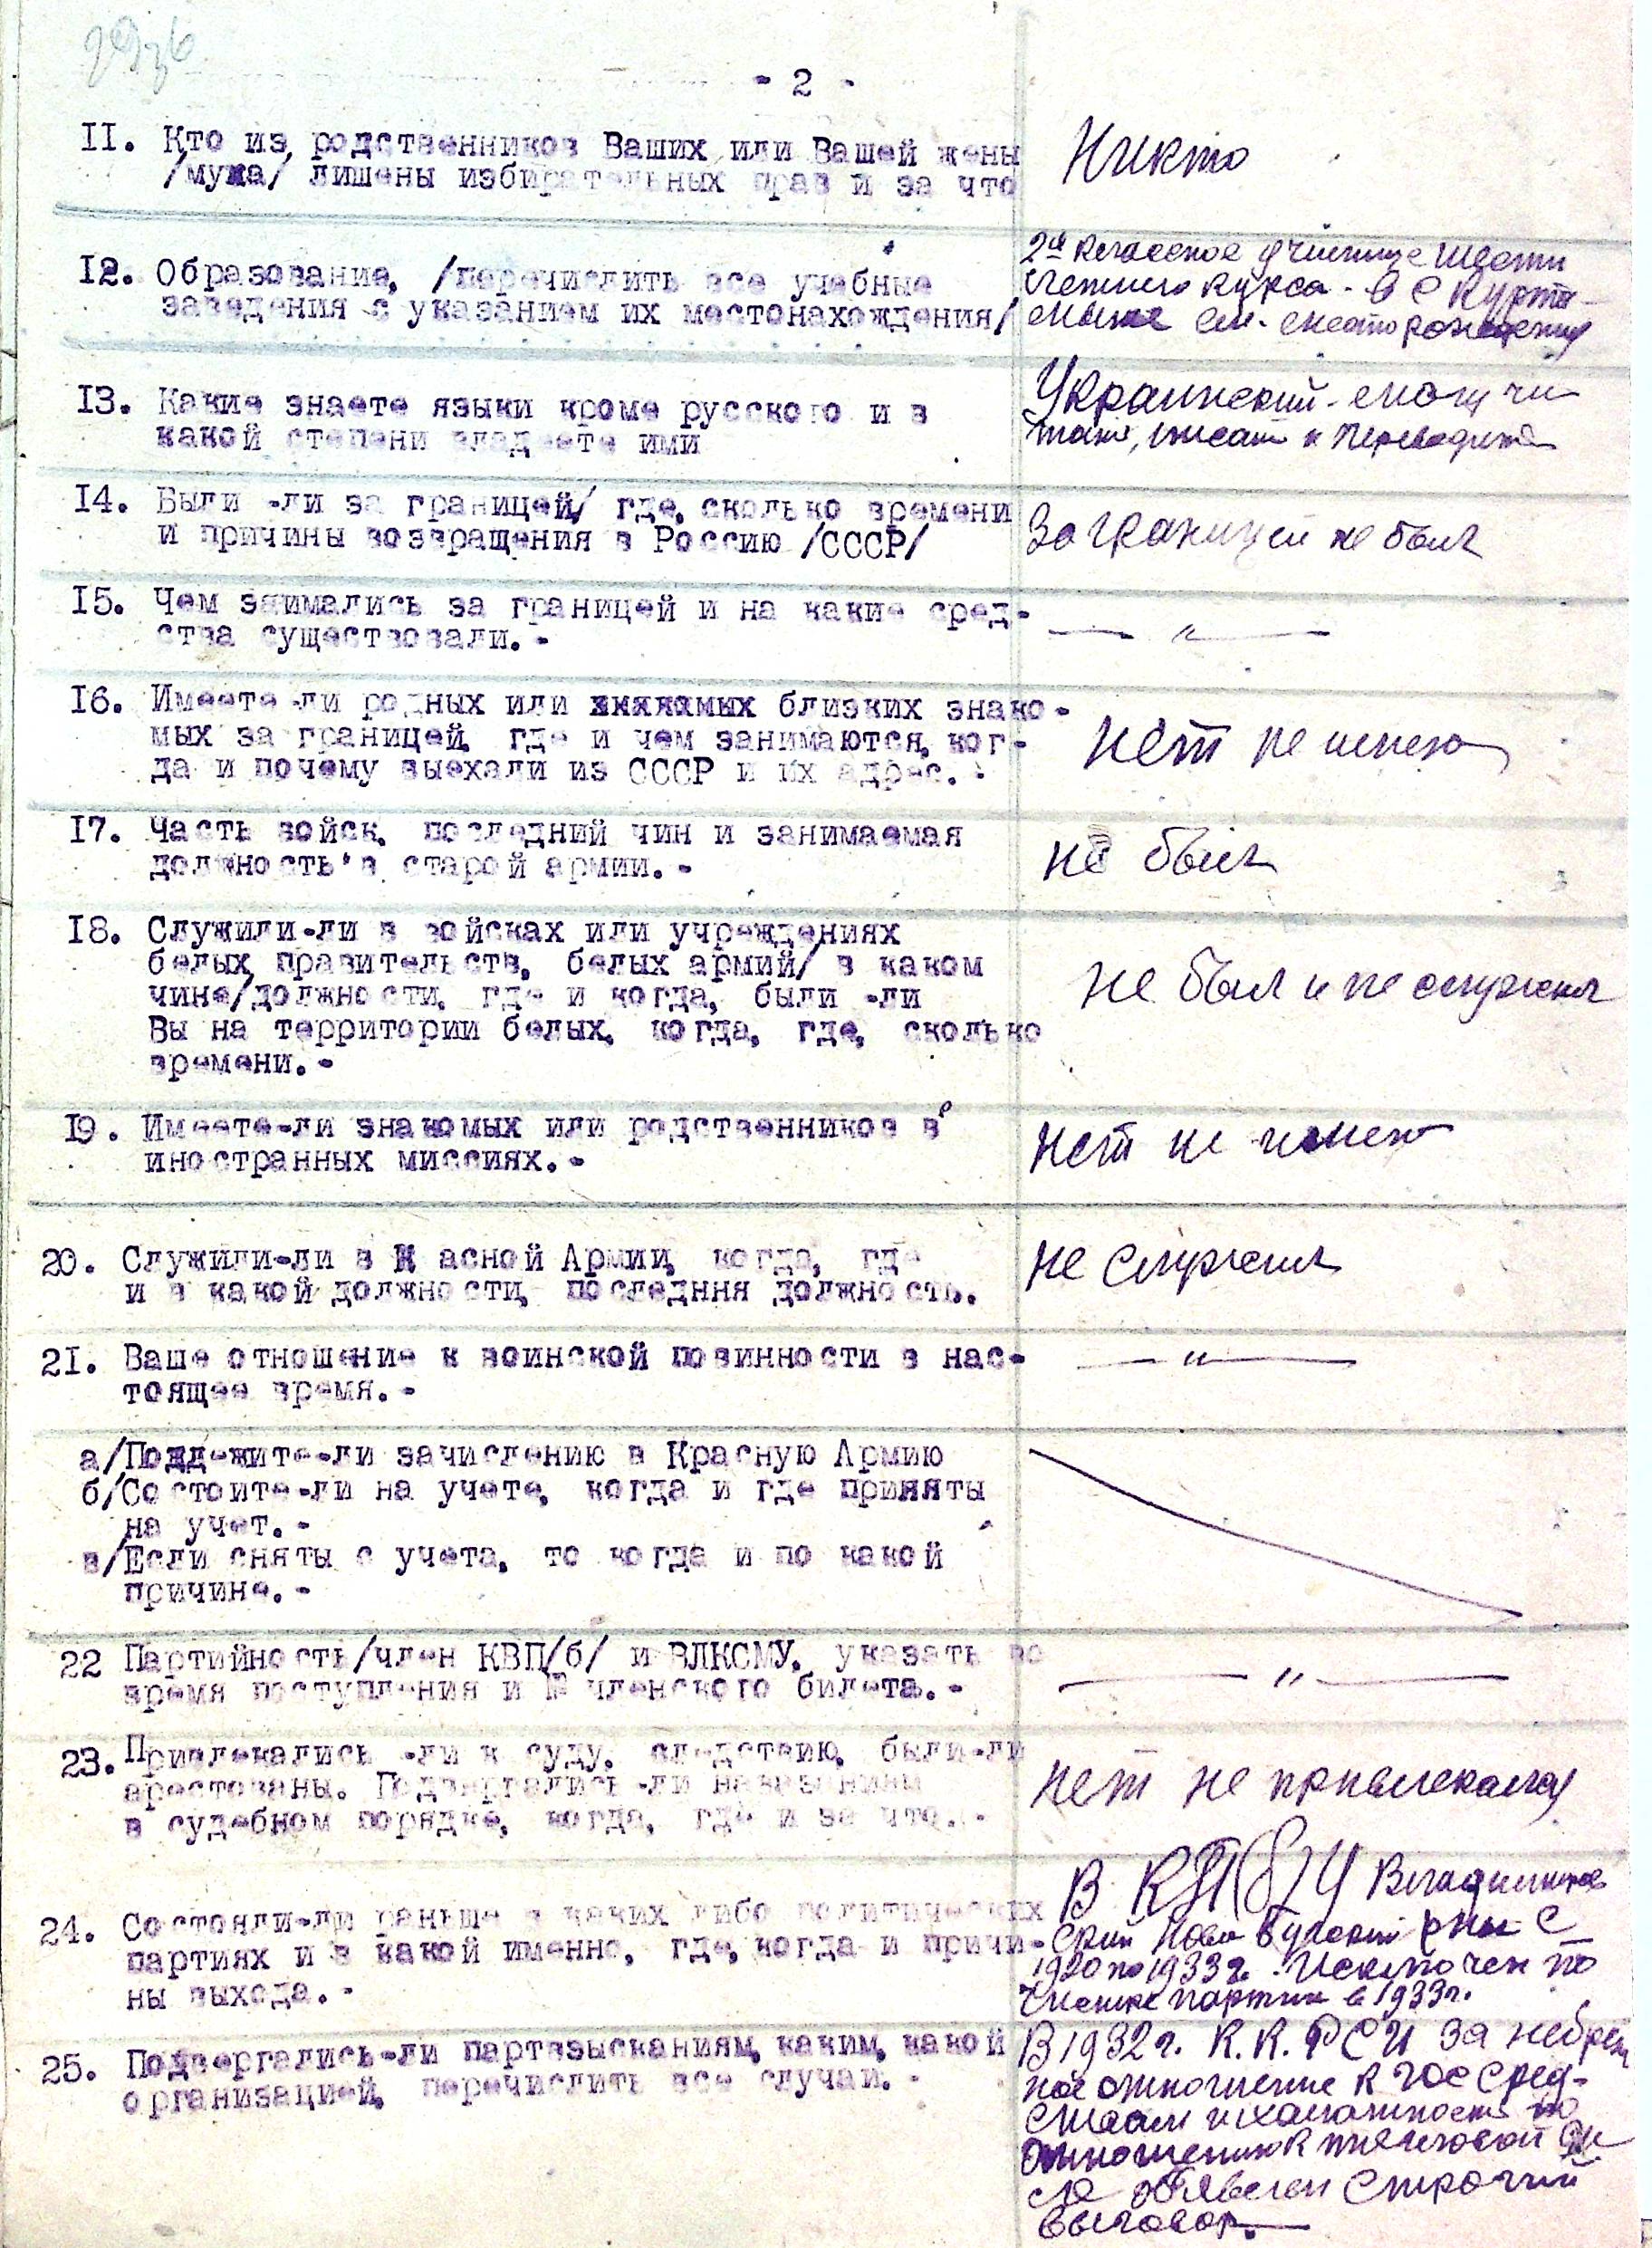 - 2 -
II. Кто из родственников Ваших или Вашей жены
/мужа/ лишены избирательных прав и за что
Никто
I2. Образование, /перечислить все учебные
заведения с указанием их местонахождения/
2х классное училище шести
летнего курса - в с
см. место рождения
I3. Какие знаете языки кроме русского и в
какой степени владеете ими
Украинский - могу чи
тать, писать и переводить
I4. Были -ли за границей/ где, сколько времени
и причины возвращения в Россию /СССР/
За границей не был
I5. Чем занимались за границей и на какие сред-
ства существовали.-
— " —
I6. Имеете-ли родных или близких знако-
мых за границей, где и чем занимаются, ког-
да и почему выехали из СССР и их адрес.-
Нет не имею
I7. Часть войск, последний чин и занимаемая
должность в старой армии.-
не был
I8. Служили-ли в войсках или учреждениях
белых правительств, белых армий/ в каком
чине/должности, где и когда, были -ли
Вы на территории белых, когда, где, сколько
времени.-
Не был и не служил
I9. Имеете-ли знакомых или родственников в
иностранных миссиях.-
Нет не имею
20. Служили-ли в К асной Армии, когда, где
и в какой должности, последняя должность.
не служил
2I. Ваше отношение к воинской повинности в нас-
тоящее время.-
— " —
а/Подлежите-ли зачислению в Красную Армию
б/Состоите-ли на учете, когда и где приняты
на учет.-
в/Если сняты с учета, то когда и по какой
причине.-
22 Партийность/член КВП/б/ и ВЛКСМУ, указать во
время поступления и № членского билета.-
— " —
23. Привлекались -ли к суду, следствию, были-ли
арестованы. Подвергались-ли наказаниям
в судебном порядке, когда, где и за что.-
Нет не привлекался
24. Состояли-ли раньше в каких либо политических
партиях и в какой именно, где, когда и причи-
ны выхода.-
В КП(б)У
Ново Бугский с
1920 по 1933 г. Исключен по
чистке партии в 1933 г.
25. Подвергались-ли партвзысканиям, каким, какой
организацией, перечислить все случаи.-
В 1932 г. К.К. РСИ за небреж
ное отношение к гос сред-
ствам и халатность по
отношению к тягловой си
ле объявлен строгий
выговор.